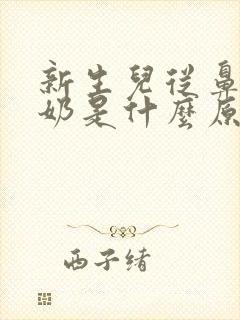 新生兒從鼻
奶是什麼原
西子绪